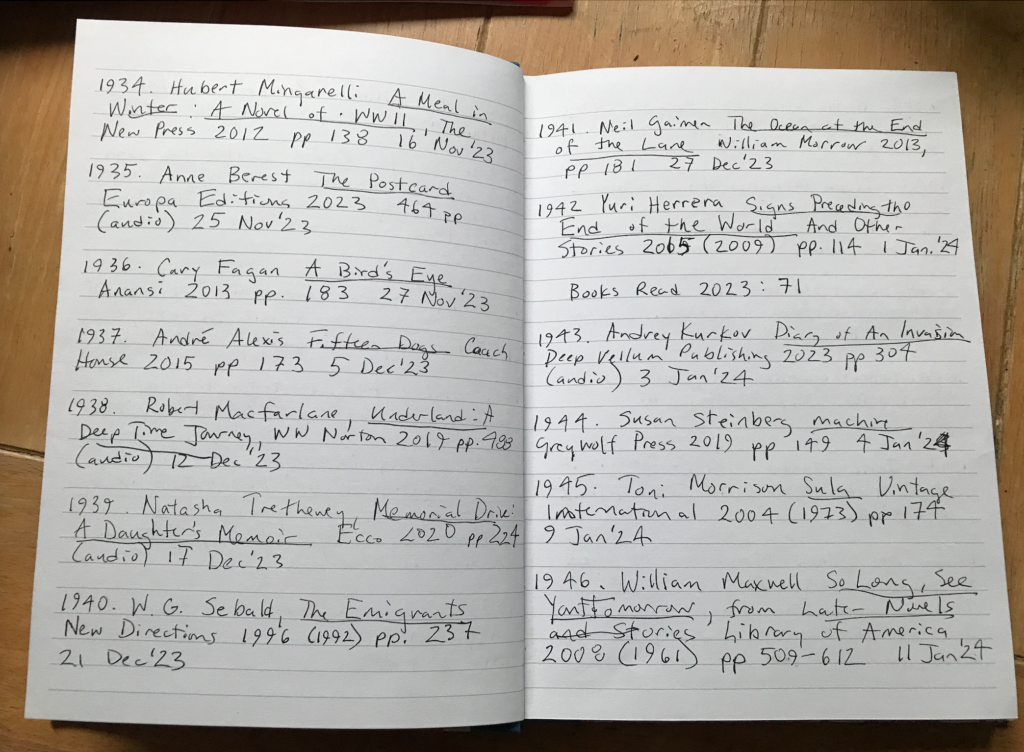 1934. Hubert Mingarelli A Meal in
Winter: A Novel of WWII, The
New Press 2012 pp 138 16 Nov'23
1935. Anne Berest The Postcard
Europa Editions 2023 464 pp
(audio) 25 Nov'23
1936. Cary Fagan A Bird's Eye
Anansi 2013 pp. 183 27 Nov'23
1937. André Alexis Fifteen Dogs Coach
House 2015 pp 173 5 Dec'23
1938. Robert Macfarlane, Underland: A
Deep Time Journey, WW Norton 2019 pp. 488
(audio) 12 Dec'23
1939. Natasha Tretheney, Memorial Drive:
A Daughter's Memoir Ecco 2020 pp 224
(audio) 17 Dec'23
1940. W. G. Sebald, The Emigrants
New Directions 1996 (1992) pp. 237
21 Dec'23
1941. Neil Gaimen The Ocean at the End
of the Lane William Morrow 2013,
pp 181 27 Dec'23
1942 Yuri Herrera Signs Preceding the
End of the World And Other
Stories 2015 (2009) pp. 114 1 Jan.'24
Books Read 2023: 71
1943. Andrey Kurkov Diary of An Invasion
Deep Vellum Publishing 2023 pp 304
(audio) 3 Jan'24
1944. Susan Steinberg machine
Greywolf Press 2019 pp 149 4 Jan'24
1945. Toni Morrison Sula Vintage
International 2004 (1973) pp 174
9 Jan'24
1946. William Maxwell So Long, See
You Tomorrow, from Late Novels
and Stories Library of America
2008 (1961) pp 509-612 11 Jan'24